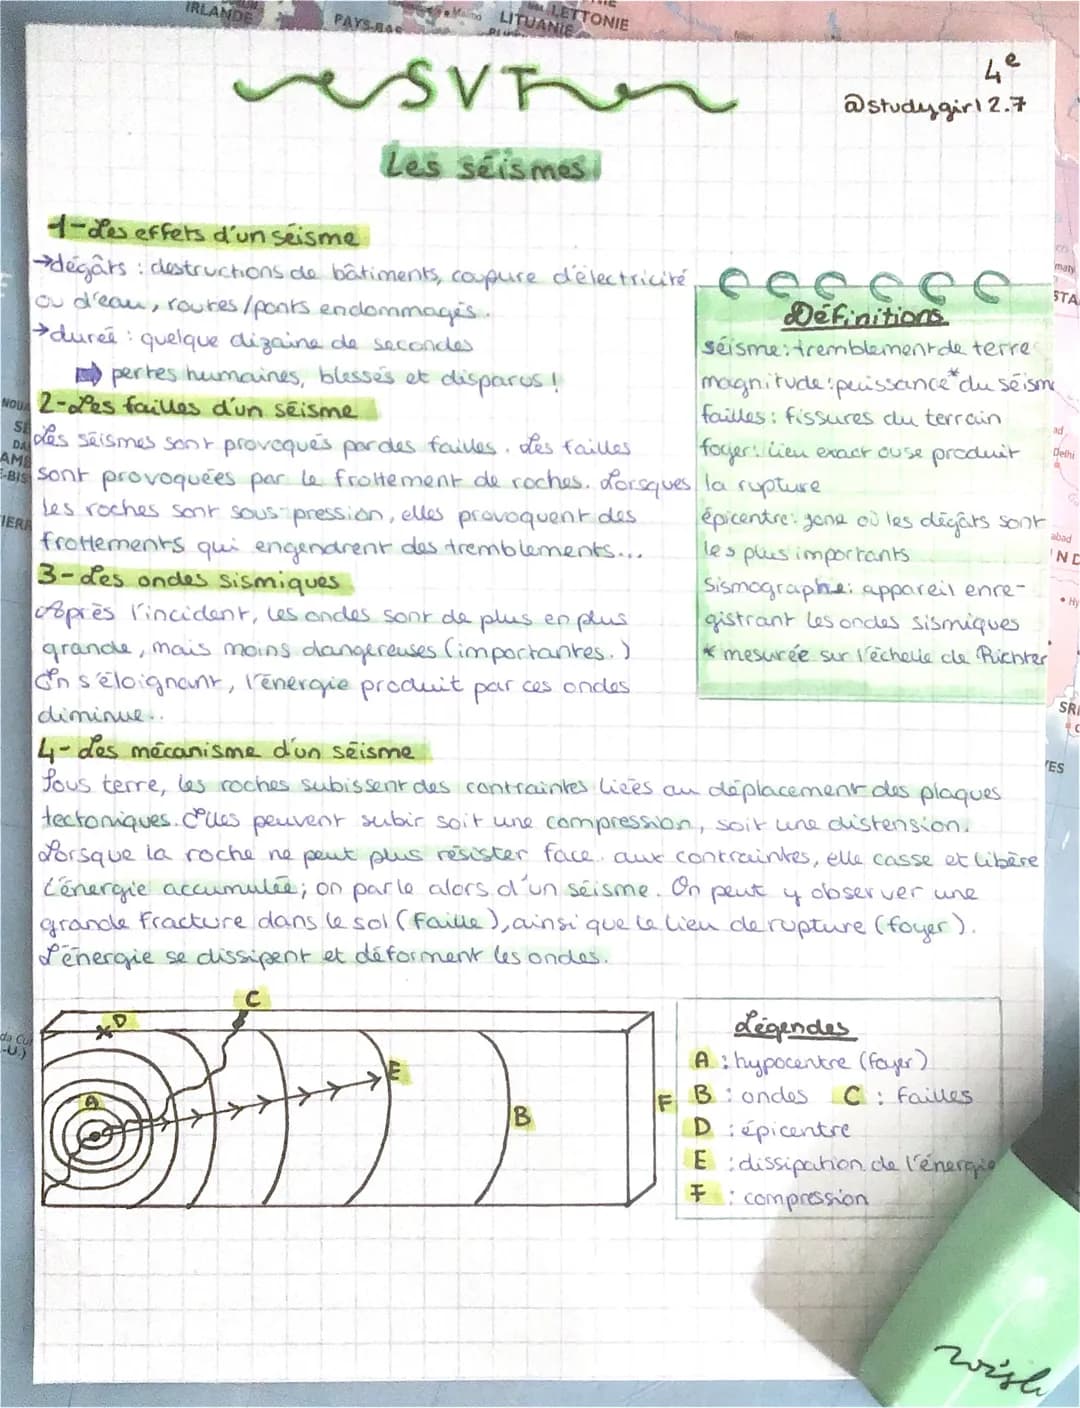 IRLANDE
PAYS-BAS
Malmö
LITUANIE
LETTONIE
SVT
4e
@studygirl2.7
Les séismes
1-Les effets d'un séisme
→dégâts : destructions de bâtiments, coupure d'électricité
ou d'eau, routes/ponts endommagés.
→durée : quelque dizaine de secondes
⇒ pertes humaines, blessés et disparus !
2-Les failles d'un séisme
Les séismes sont provoqués par des failles. Les failles
sont provoquées par le frottement de roches. Lorsques
les roches sont sous-pression, elles provoquent des
frottements qui engendrent des tremblements...
3-Les ondes sismiques
Après l'incident, les ondes sont de plus en plus
grande, mais moins dangereuses (importantes.)
En s'éloignant, l'énergie produit par ces ondes
diminue..
Définitions
séisme: tremblement de terre
magnitude: puissance* du séisme
failles: fissures du terrain
foyer: lieu exact ou se produit
la rupture
épicentre: zone où les dégâts sont
les plus importants
Sismographe: appareil enre-
gistrant les ondes sismiques
* mesurée sur l'échelle de Richter
4-Les mécanisme d'un séisme
Sous terre, les roches subissent des contraintes liées au déplacement des plaques
tectoniques. Elles peuvent subir soit une compression, soit une distension.
Lorsque la roche ne peut plus résister face aux contraintes, elle casse et libère
l'énergie accumulée; on parle alors d'un séisme. On peut y observer une
grande fracture dans le sol (faille), ainsi que le lieu de rupture (foyer).
L'énergie se dissipent et déforment les ondes.
C
D
A
E
B
F
Légendes
A : hypocentre (foyer)
B : ondes C : failles
D : épicentre
E : dissipation de l'énergie
F : compression
Delhi